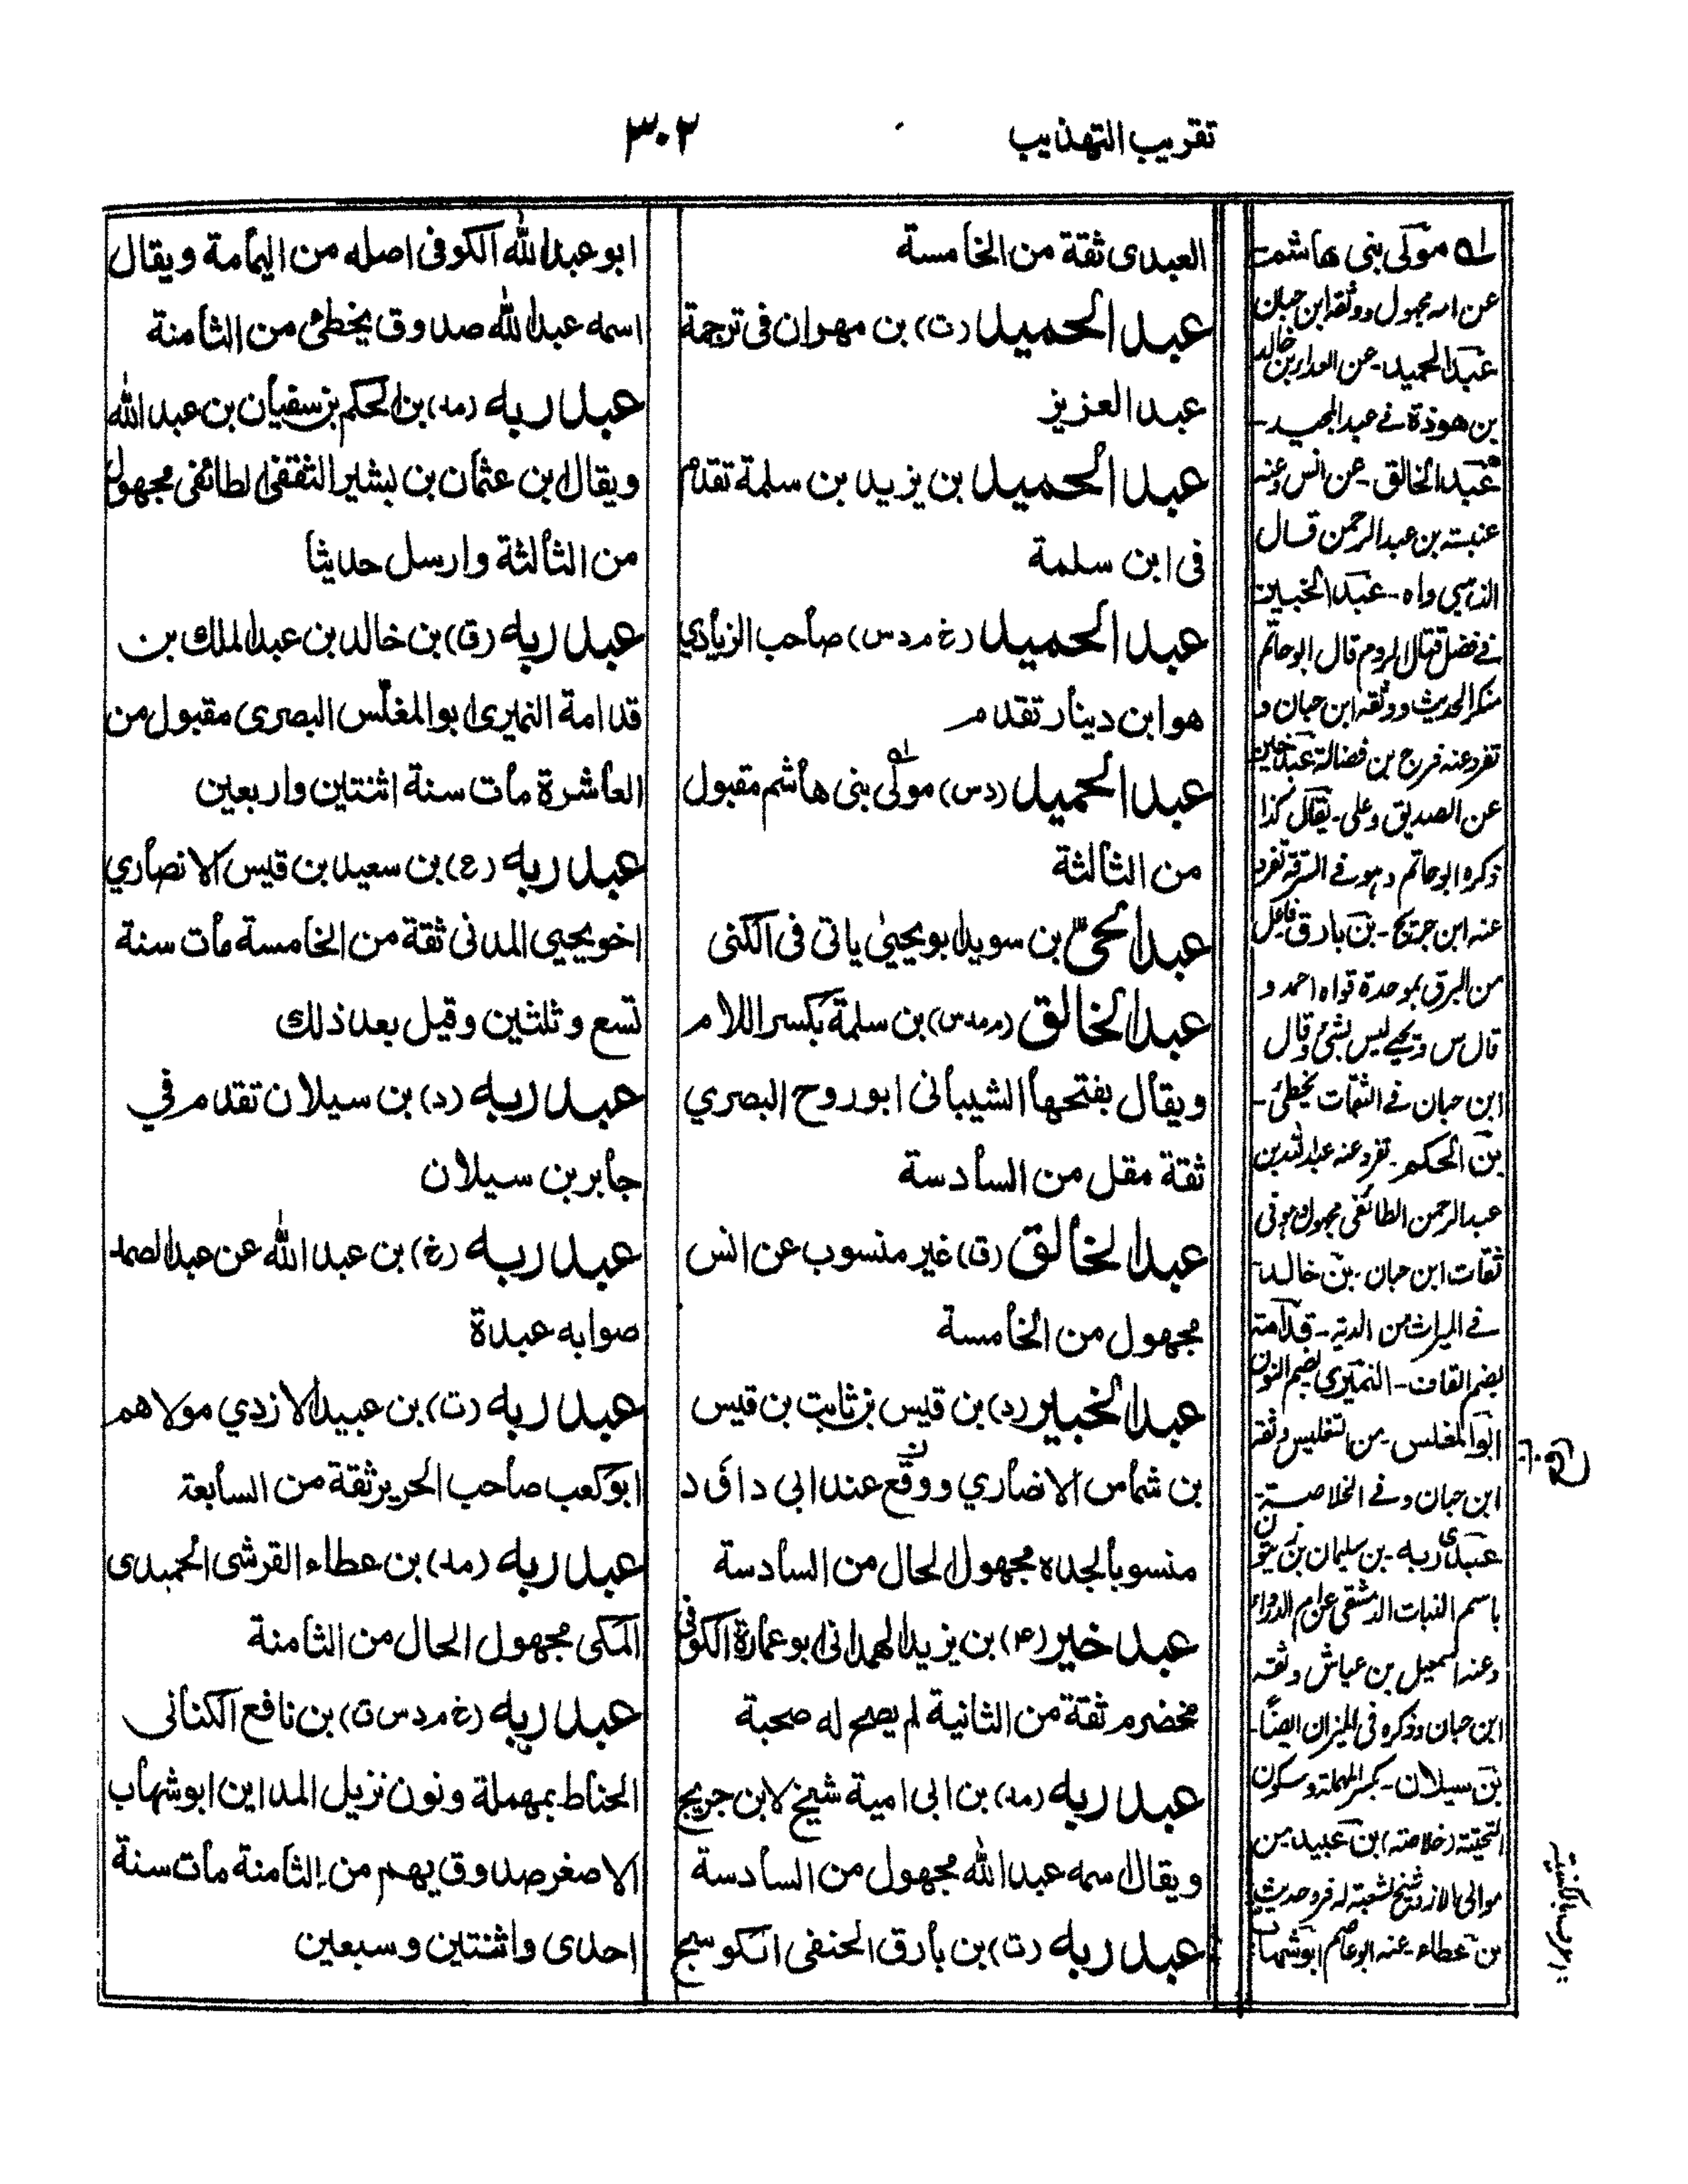 تقريب التهذيب
٣٠٢
العبدى ثقة من الخامسة
عبد الحميد (ت) بن مهران فى ترجمة
عبد العزيز
عبد الحميد بن يزيد بن سلمة تقدم
فى ابن سلمة
عبد الحميد (غ م د س) صاحب الزيادي
هو ابن دينار تقدم
عبد الحميد (دس) مولى بنى هاشم مقبول
من الثالثة
عبد الحىّ بن سويد ابو يحيىٰ ياتى فى الكنى
عبد الخالق (م مد س) بن سلمة بكسر اللام
ويقال بفتحها الشيبانى ابو روح البصري
ثقة مقل من السادسة
عبد الخالق (ق) غير منسوب عن انس
مجهول من الخامسة
عبد الخبير (د) بن قيس بن ثابت بن قيس
بن شماس الانصاري ووقع عند ابى داؤد
منسوبا لجده مجهول الحال من السادسة
عبد خير (۴) بن يزيد الهمدانى ابو عمارة الكوفى
مخضرم ثقة من الثانية لم يصح له صحبة
عبد ربه (مد) بن ابى امية شيخ لابن جريج
ويقال اسمه عبد الله مجهول من السادسة
عبد ربه (ت) بن بارق الحنفى الكوسج
ابو عبد الله الكوفى اصله من اليمامة ويقال
اسمه عبد الله صدوق يخطئ من الثامنة
عبد ربه (مد) بن الحكم بن سفيان بن عبد الله
ويقال ابن عثمان بن بشير الثقفى الطائفى مجهول
من الثالثة وارسل حديثا
عبد ربه (ق) بن خالد بن عبد الملك بن
قدامة النميرى ابو المغلّس البصرى مقبول من
العاشرة مات سنة اثنتين واربعين
عبد ربه (ع) بن سعيد بن قيس الانصاري
اخو يحيى المدنى ثقة من الخامسة مات سنة
تسع وثلثين وقيل بعد ذلك
عبد ربه (د) بن سيلان تقدم في
جابر بن سيلان
عبد ربه (غ) بن عبد الله عن عبد الصمد
صوابه عبدة
عبد ربه (ت) بن عبيد الازدي مولاهم
ابو كعب صاحب الحرير ثقة من السابعة
عبد ربه (مد) بن عطاء القرشى الحميدى
المكى مجهول الحال من الثامنة
عبد ربه (غ م د س ق) بن نافع الكنانى
الحناط بمهملة ونون نزيل المداين ابو شهاب
الاصغر صدوق يهم من الثامنة مات سنة
احدى واثنتين وسبعين
له مولى بنى هاشم
عن امه مجهول ووثقه ابن حبان
عبد الحميد - عن العداء بن خالد
بن هوذة فى عبد المجيد -
عبد الخالق - عن انس وعنه
عنبسة بن عبد الرحمن قال
الذهبي واه - عبد الخبير
فى فضل قتال الروم قال ابو حاتم
منكر الحديث ووثقه ابن حبان و
تفرد عنه فرج بن فضالة عبد خير
عن الصديق وعلى - يقال كذا
ذكره ابو حاتم وهو فى السرقة تفرد
عنه ابن جريج - بن بارق فاعل
من البرق بموحدة قواه احمد و
قال س ويحيى ليس بشئ وقال
ابن حبان فى الثقات يخطئ -
بن الحكم - تفرد عنه عبد الله بن
عبد الرحمن الطائفى مجهول وهو فى
ثقات ابن حبان - بن خالد
فى الميراث من الدية - قدامة
بضم القاف - النميرى بضم النون
ابو المغلس - من التغليس وثقه
ابن حبان وفى الخلاصة -
عبد ربه - بن سليمان بن زيتون
باسم النبات الدمشقى عن ام الدرداء
وعنه اسمعيل بن عياش وثقه
ابن حبان وذكره فى الميزان ايضًا -
بن سيلان - بكسر المهملة وسكون
التحتية (خلاصة) بن عبيد من
موالى الازد شيخ لشعبة له فرد حديث
بن عطاء - عنه ابو عاصم ابو شهاب